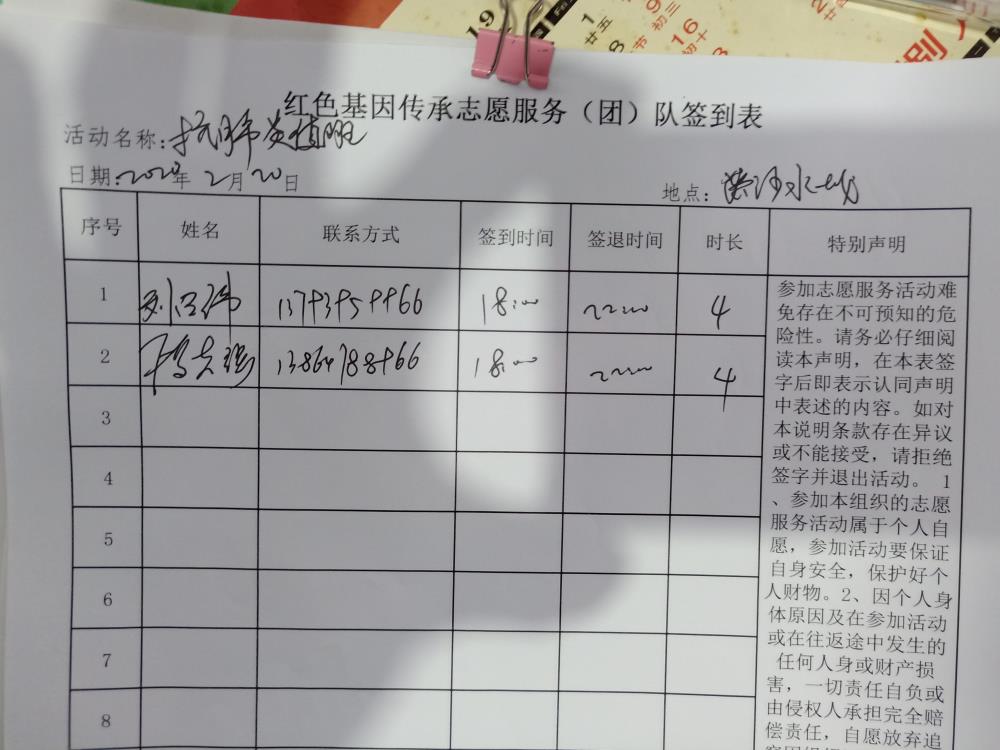 19
1
廿五
8
节
初三
16
初十
红色基因传承志愿服务（团）队签到表
活动名称：抗肺炎
日期：2020年2月20日
地点：
序号 姓名 联系方式 签到时间 签退时间 时长 特别声明
1 18:00 22:00 4
2 18:00 22:00 4
3
4
5
6
7
8
参加志愿服务活动难
免存在不可预知的危
险性。请务必仔细阅
读本声明，在本表签
字后即表示认同声明
中表述的内容。如对
本说明条款存在异议
或不能接受，请拒绝
签字并退出活动。 1
、参加本组织的志愿
服务活动属于个人自
愿，参加活动要保证
自身安全，保护好个
人财物。2、因个人身
体原因及在参加活动
或在往返途中发生的
任何人身或财产损
害，一切责任自负或
由侵权人承担完全赔
偿责任，自愿放弃追